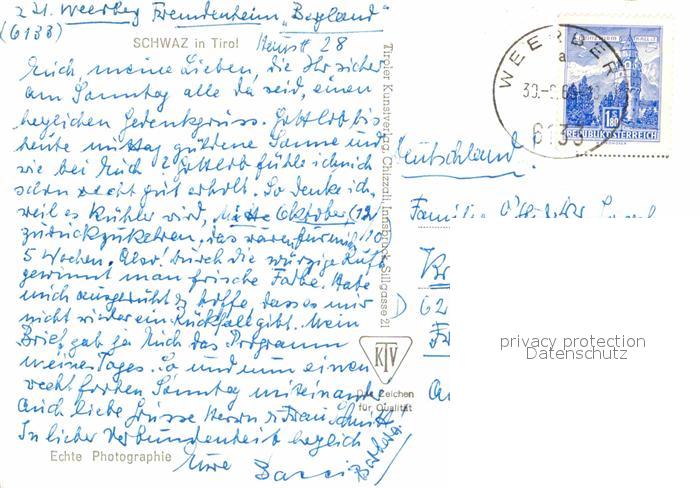 z. Zt. Weerberg Fremdenheim „Bergland"
(6133)
SCHWAZ in Tirol
Haus # 28
Euch, meine Lieben, die Ihr sicher
am Sonntag alle da seid, einen
herzlichen Gedenkgruss. Gottlob bis
heute mittag güldene Sonne und
wie bei Euch? Gottlob fühle ich mich
schon recht gut erholt. So denke ich,
weil es kühler wird, Mitte Oktober (12/10)
zurückzukehren, das wären für mich
5 Wochen. Also! Durch die würzige Luft
gewinnt man frische Farbe. Habe
mich ausgeruht & hoffe, dass es mir
nicht wieder ein Rückfall gibt. Mein
Brief gab ja Euch das Programm
meines Tages. So und nun einen
recht frohen Sonntag miteinander
Auch liebe Grüsse Herrn & Frau Schmitt
In lieber Verbundenheit herzlich
Eure
Barbara
Echte Photographie
Tiroler Kunstverlag Chizzali, Innsbruck, Sillgasse 21
KTV
Das Zeichen
für Qualität
WEERBERG
a
6133
1.80
REPUBLIK ÖSTERREICH
Deutschland.
Familie
62
privacy protection
Datenschutz